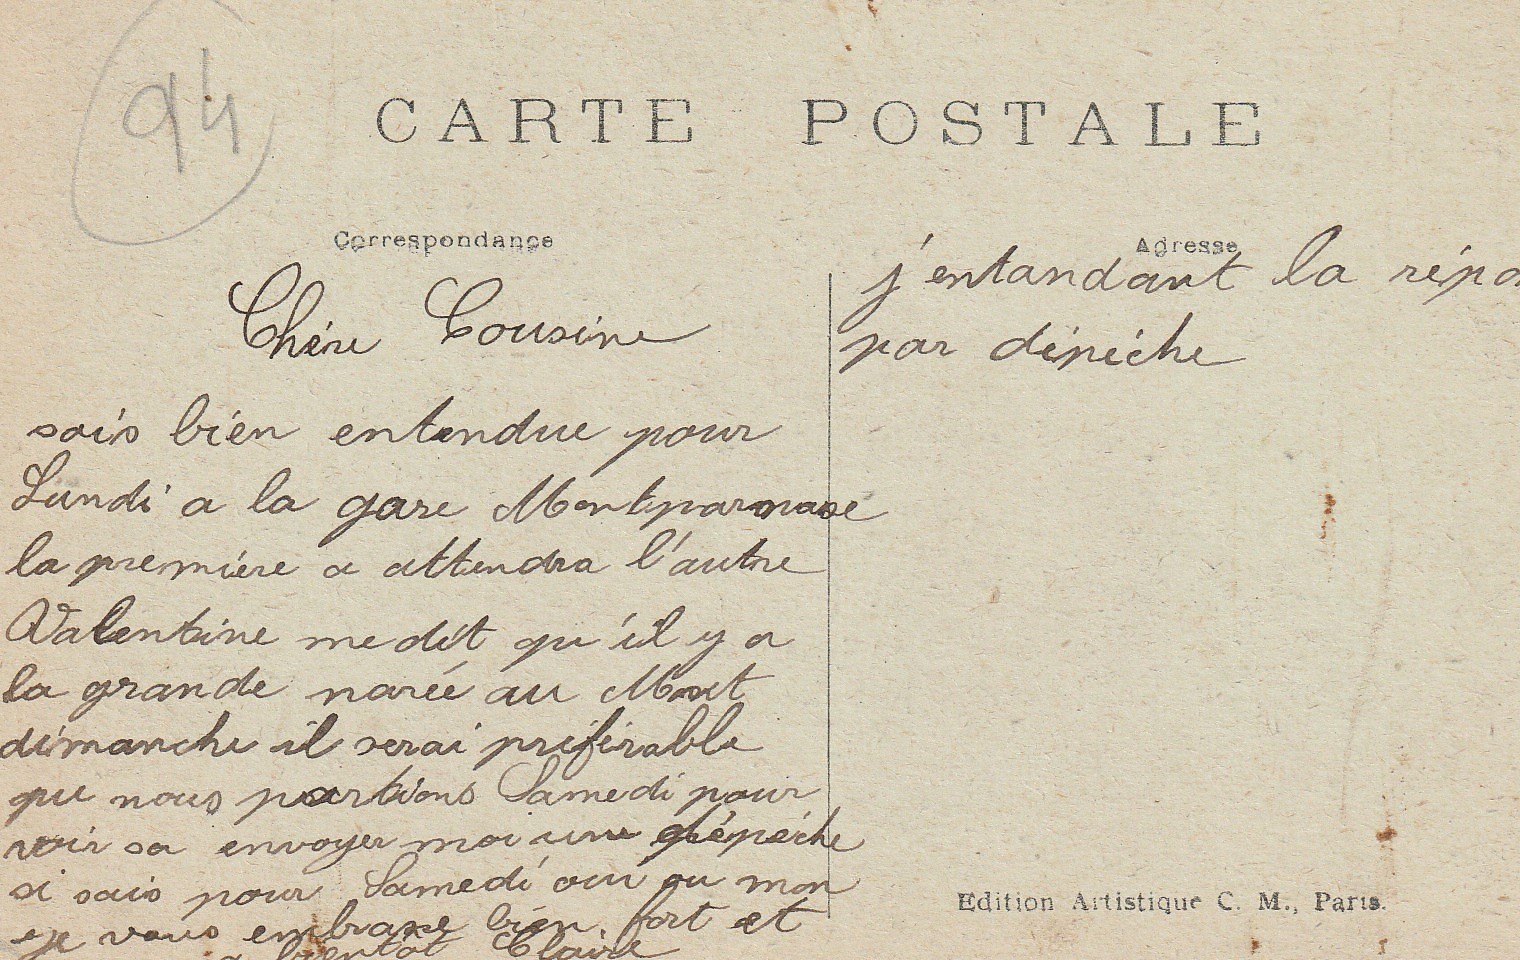 94
CARTE POSTALE
Correspondance
Chère Cousine
sais bien entendue pour
Lundi a la gare Montparnase
la première a attendra l'autre
Valentine me dit qu'il y a
la grande marée au Mont
dimanche il serai préférable
que nous partions Samedi pour
voir sa envoyer moi une dépéche
si sais pour Samedi oui ou non
je vous embrase bien fort et
a bientôt Claire
Adresse
j'entandant la répo
par dépéche
Edition Artistique C. M., Paris.